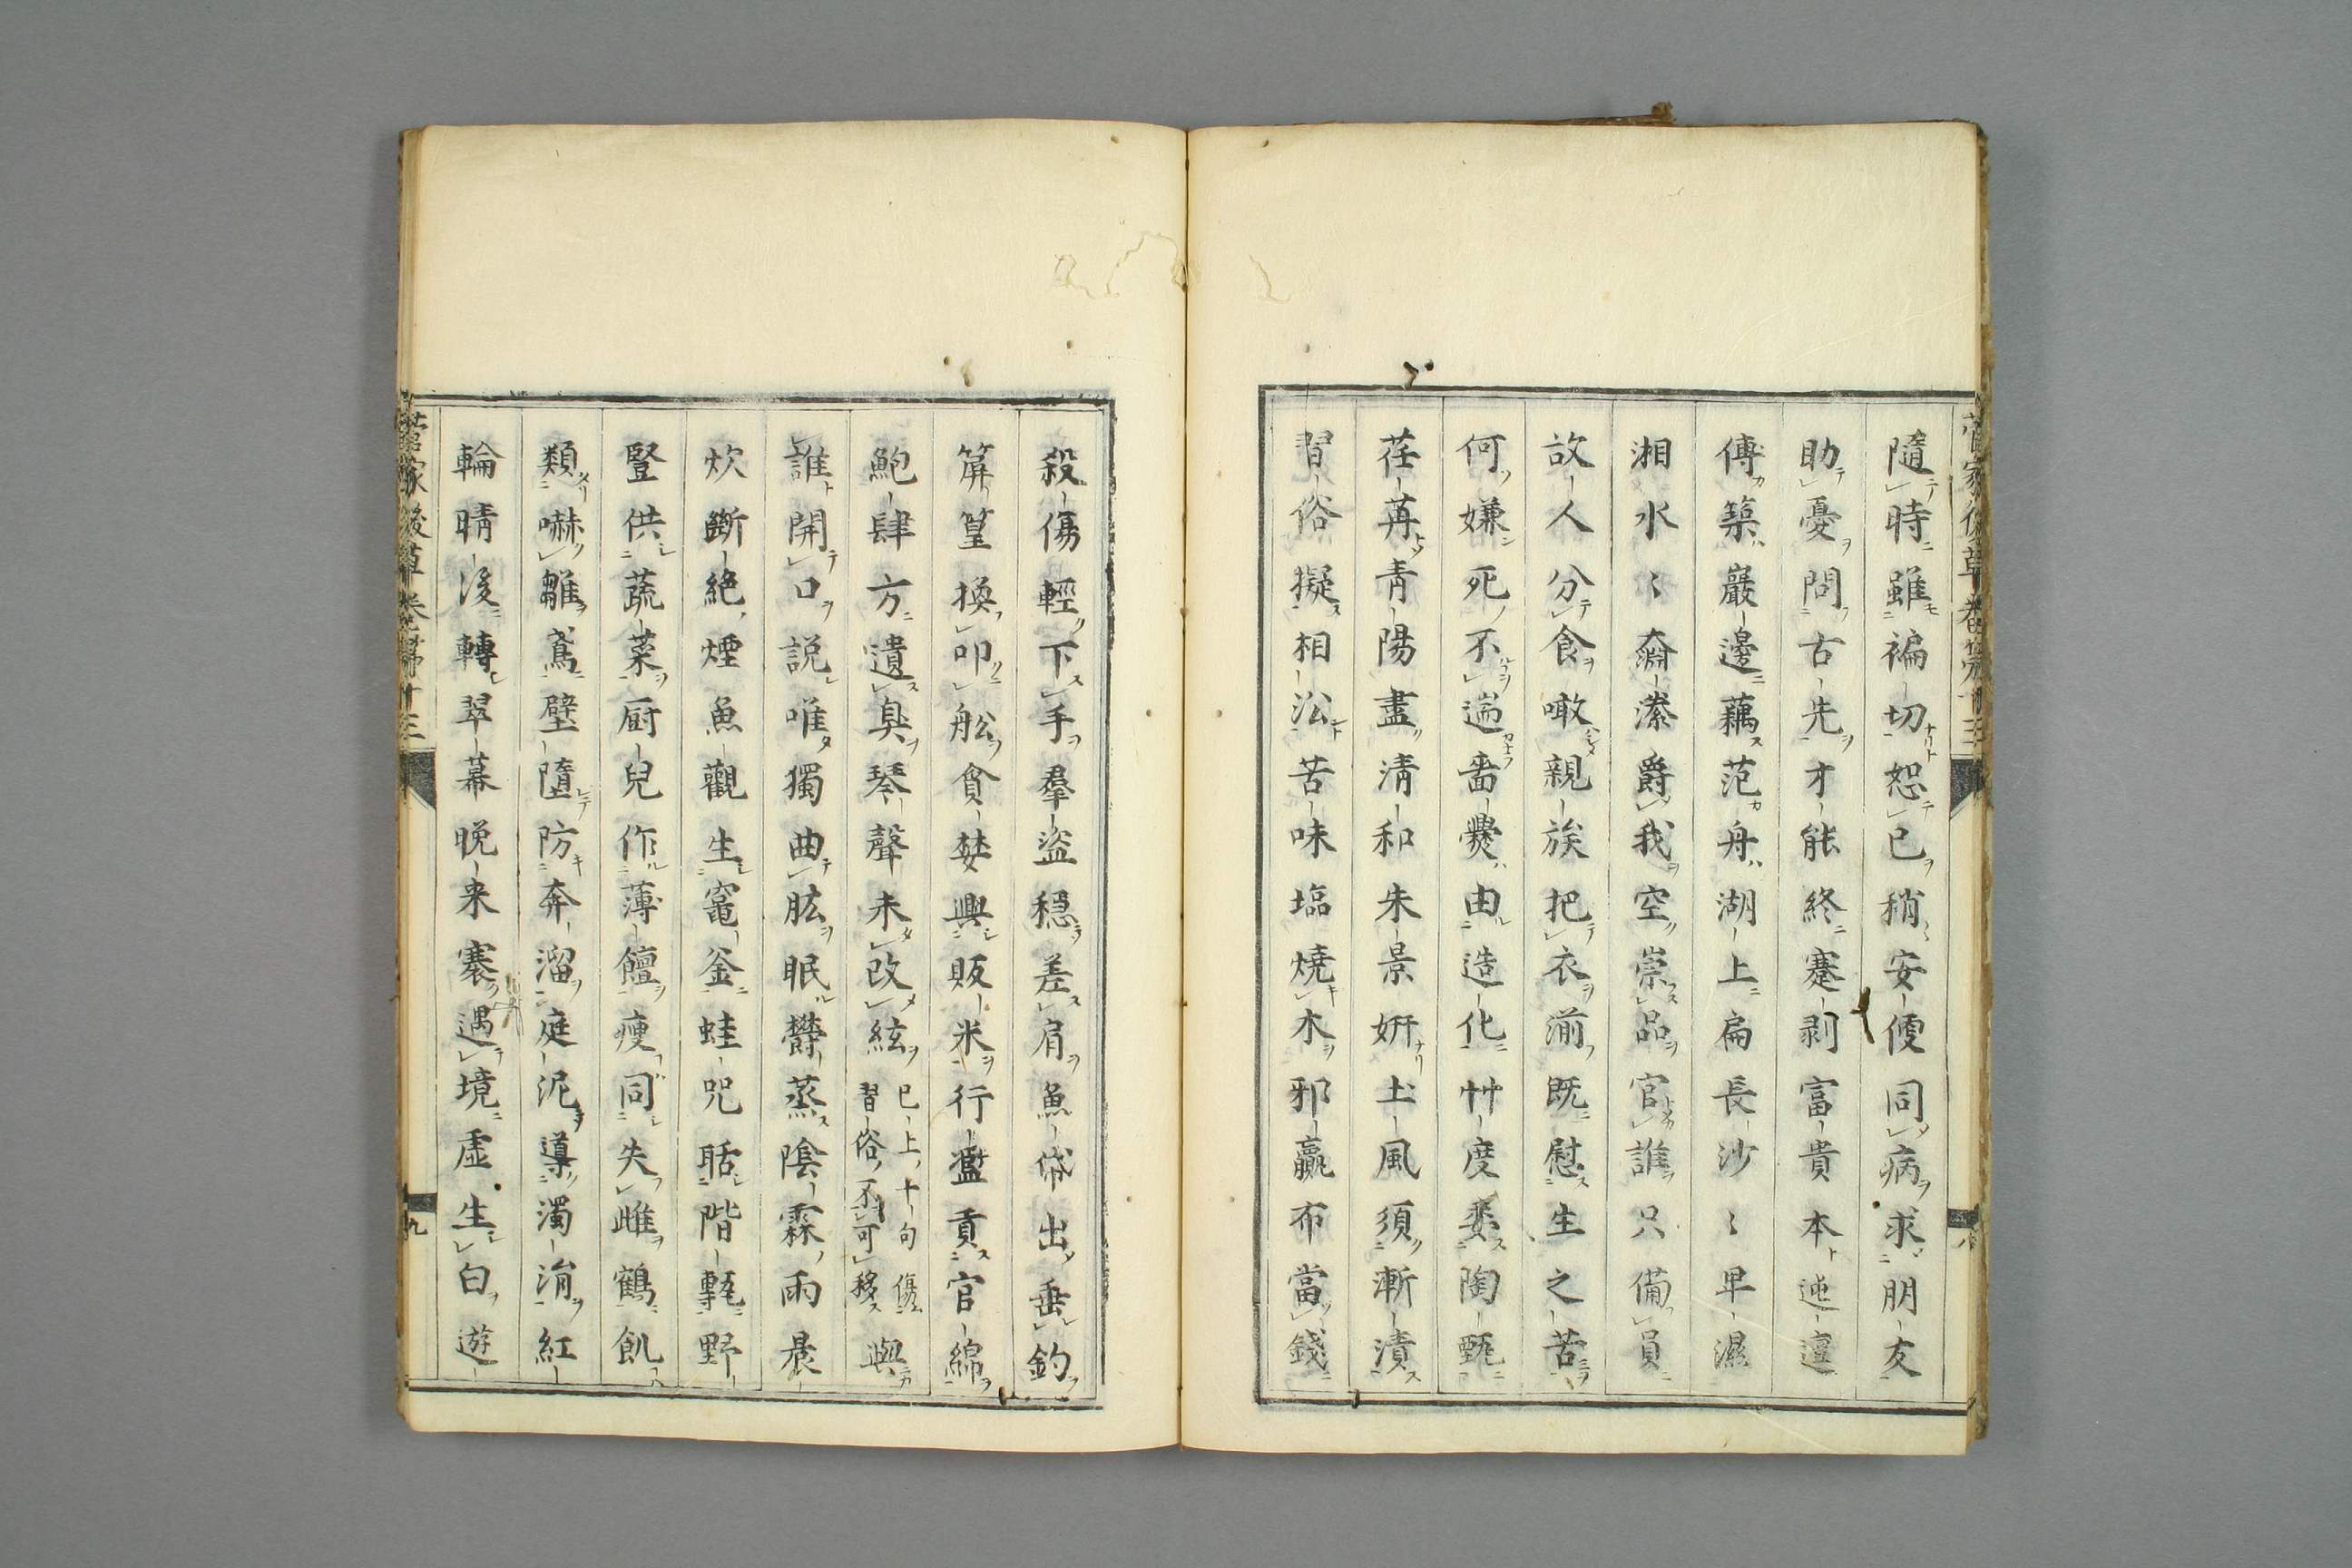 隨時雖褊切恕己稍安便同病求朋友
助憂問古先才能終蹇剥富貴本迍邅
傅築巖邊藕范舟湖上扁長沙〻早濕
湘水〻奫潫爵我空崇品官誰只備員
故人分食噉親族把衣湔既慰生之苦
何嫌死不遄嗇㸑由造化忖度委陶甄
荏苒青陽盡清和朱景妍土風須漸漬
習俗擬相沿苦味塩燒木邪贏布當錢
殺傷輕下手羣盗穩差肩魚袋出垂釣
篛篁換叩舩貪婪興販米行濫貢官綿
鮑肆方遺臭琴聲未改絃
已上十句傷
習俗不可移
與
誰開口説唯獨曲肱眠欝蒸陰霖雨晨
炊斷絶煙魚觀生竈釜蛙咒聒階甎野
豎供蔬菜厨兒作薄饘痩同失雌鶴飢
類嚇雛鳶壁墮防奔溜庭泥導濁涓紅
輪晴後轉翠幕晩来褰遇境虛生白遊
菅家後草
九